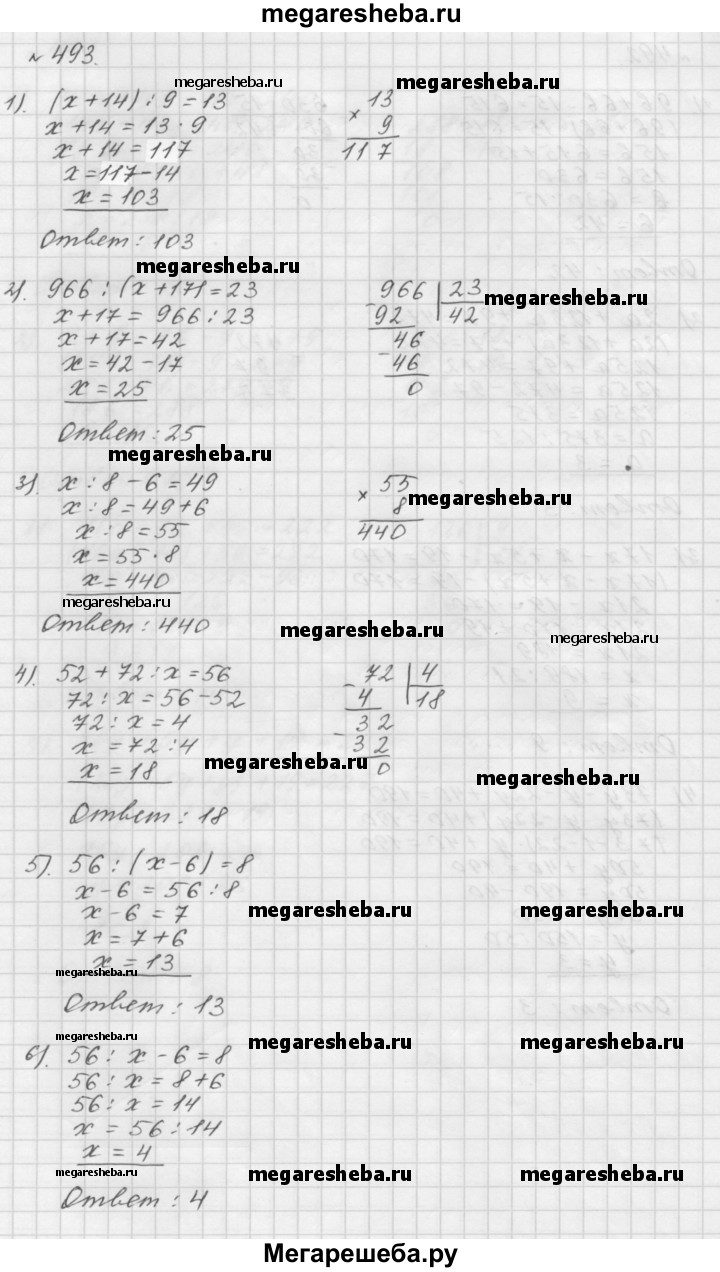 megaresheba.ru
№ 493.
megaresheba.ru megaresheba.ru
1). (x+14) : 9 = 13
x+14 = 13 · 9
x+14 = 117
x = 117-14
x = 103
× 13
9
117
Ответ: 103
megaresheba.ru
2). 966 : (x+17) = 23
x+17 = 966 : 23
x+17 = 42
x = 42 - 17
x = 25
- 966 | 23
92 42
- 46
46
0
megaresheba.ru
Ответ: 25
megaresheba.ru
3). x : 8 - 6 = 49
x : 8 = 49+6
x : 8 = 55
x = 55 · 8
x = 440
× 55
8
440
megaresheba.ru
megaresheba.ru
Ответ: 440
megaresheba.ru megaresheba.ru
4). 52 + 72 : x = 56
72 : x = 56-52
72 : x = 4
x = 72 : 4
x = 18
- 72 | 4
4 18
- 32
32
0
megaresheba.ru
megaresheba.ru
Ответ: 18
5). 56 : (x-6) = 8
x-6 = 56 : 8
x-6 = 7
x = 7+6
x = 13
megaresheba.ru megaresheba.ru
megaresheba.ru
Ответ: 13
megaresheba.ru
megaresheba.ru megaresheba.ru
6). 56 : x - 6 = 8
56 : x = 8+6
56 : x = 14
x = 56 : 14
x = 4
megaresheba.ru megaresheba.ru megaresheba.ru
Ответ: 4
Мегарешеба.ру